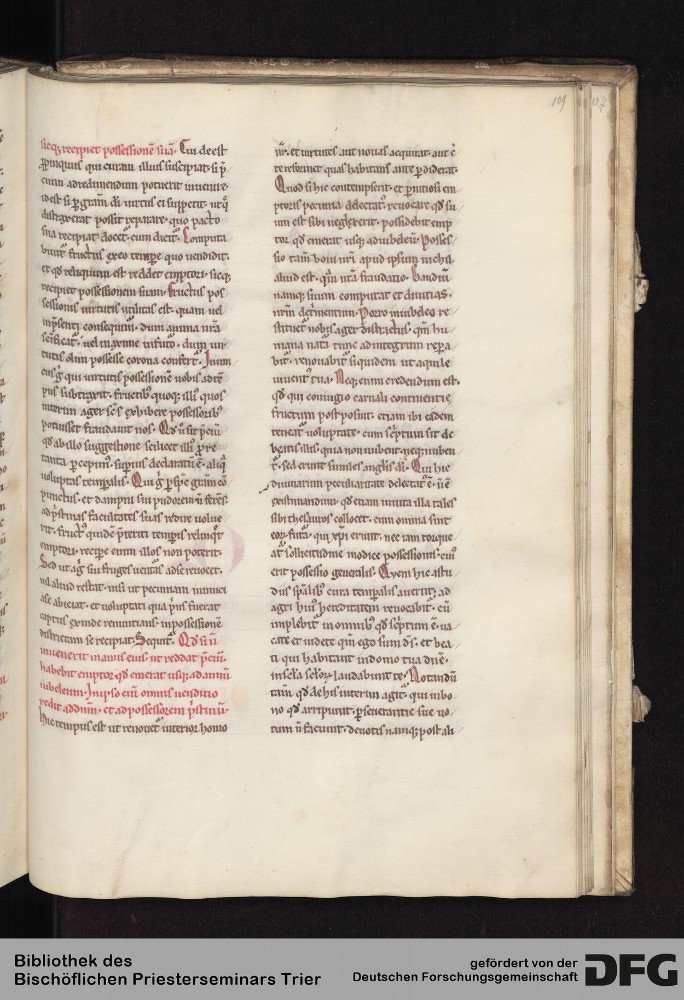 129
127
sicq; recipiet possessionē suā. Cui deest
ꝓpinquus qui curam illius suscipiat. si p̄
cium ad redimendum potuerit inuenire.
idest si ꝑ gram̄ di uirtus ei suppetit. ut q̄
distraxerat possit reparare. quo pacto
sua recipiat docet. cum dicit. Computa
buntˀ fructus ex eo tempre quo uendidit.
et qd reliquum est reddet emptori. sicq;
recipiet possessionem suam. Fructus pos
sessionis uirtutis utilitas est. quam uel
in p̄senti consequimˀ. dum anima nr̄a
uel maxime in futuro. dum uir
tutis olim possesse corona confertˀ.
eius ḡ qui uirtutis possessionē nobis
pus subtraxit. fructibˀ quoq; illis quos
interim ager se s; exhibere possessoribˀ
potuisset fraudauit nos. Qd
qd ab illo suggestione scilicet illiˀ
tanta p̄cepimˀ. supius declaratū ē. aliq̄
uoluptas temporalis. Qui ḡ
punctus. et dampni sui pudorem ñ ferens.
ad p̄stinas facultates suas redire uolue
rit. fructˀ quidē p̄teriti temporis relinqt
emptori. recipe enim illos non poterit.
Sed ut agˀ sui fruges ueritas ad se reuocet.
nil aliud restat. nisi ut pecuniam inimici
a se abiciat. et uoluptati qua priˀ fuerat
captus exinde renuntians. in possessionē
districtam se recipiat. Sequitˀ. Qd si ñ
inuenerit manus eius. ut reddat p̄cium.
habebit emptor qd emerat usq; ad annū
iubeleum. In ipso enī omnis uenditio
redit ad dnm̄. et ad possessorem p̄stinū.
Hic tempus est ut renouetˀ interior homo
nr̄. et uirtutes aut nouas acquirat. aut c̄
te reformet quas habitans ante pdiderat.
Quod si hic contempserit. et pnitiosi em
ptoris pecunia delectatˀ. reuocare qd su
um est sibi neglexerit. possidebit emp
tor qd emerat usq; ad iubeleū. Posses
sio tam̄ boni nr̄i apud ipsum nichil
aliud est. qm̄ nr̄a fraudatio. Gaudiū
namq; suum computat et diuitias.
nrm̄ detrimentum. Porro in iubeleo re
stituetˀ nobis ager distractus. qm̄ hu
mana nat̄a tunc ad integrum repa
bitˀ. renouabitˀ siquidem ut aquile
iuuentˀ tua. Neq; enim credendum est.
qd qui coniugio carnali continentie
fructum postposuit. etiam ibi eadem
teneatˀ uoluptate. cum scriptum sit de
beatis illis. quia non nubent. neq; nuben
tˀ. sed erunt similes anglis di. Qui hic
diuitiarum peculiaritate delectatˀ ē. ñ ē
existimandum. qd etiam in uita illa tales
sibi thesauros collocet. cum omnia sint
eorˀ futa. qui xp̄i erunt. nec tam torque
atˀ sollicitudine modice possessionis. cuiˀ
erit possessio generalis. Quem hic assi
duˀ spalibˀ cura temporalis auertitˀ. ad
agri huiˀ hereditatem reuocabitˀ. cū
implebitˀ in omnibˀ qd scriptum ē. ua
cate et uidete qm̄ ego sum ds. et bea
ti qui habitant in domo tua dn̄e.
in scl̄a sclorˀ laudabunt te. Notandū
tam̄ qd de his interim agitˀ. qui in bo
no qd arripiunt. pseuerantie sue uo
tum ñ faciunt. deuotis namq; post ali
Bibliothek des
Bischöflichen Priesterseminars Trier
gefördert von der
Deutschen Forschungsgemeinschaft
DFG